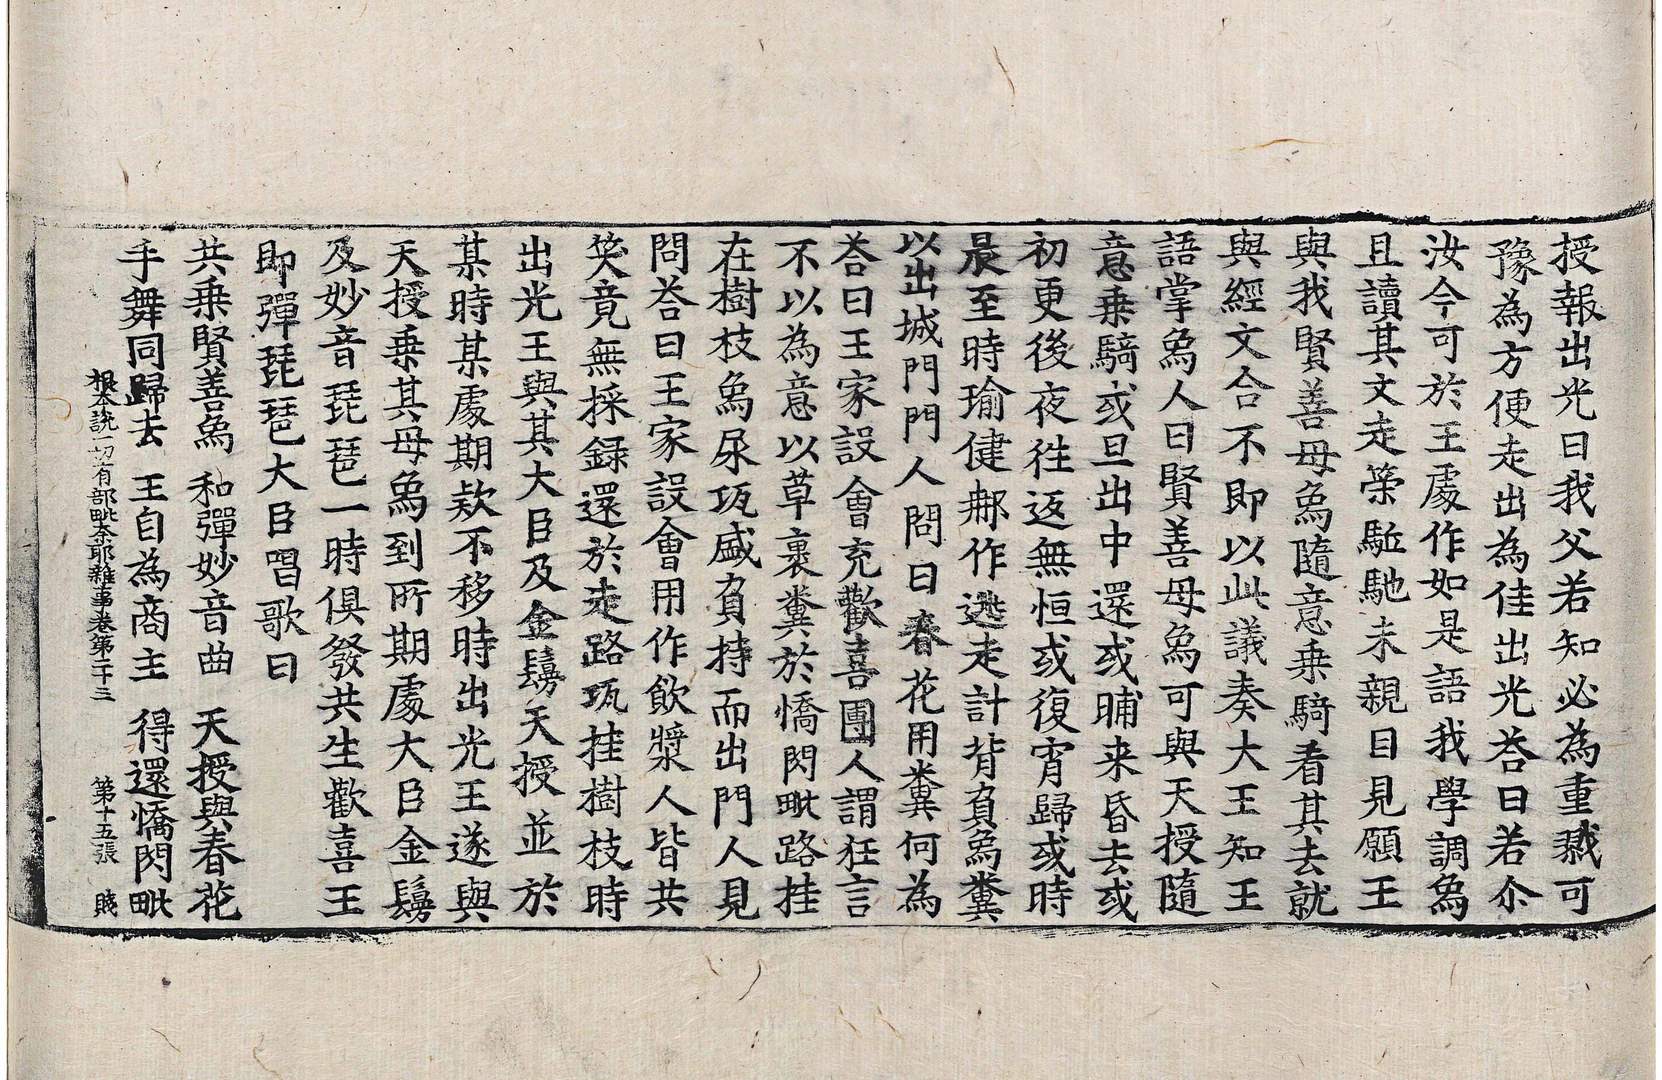 授報出光曰我父若知必為重戮可
豫為方便走出為佳出光荅曰若尒
汝今可於王處作如是語我學調象
且讀其文走䇿駈馳未親目見願王
與我賢善母象隨意乗騎看其去就
與經文合不即以此議奏大王知王
語掌象人曰賢善母象可與天授隨
意乗騎或旦出中還或晡来昏去或
初更後夜往返無恒或復宵歸或時
晨至時瑜健那作逃走計背負象糞
以出城門門人問曰春花用糞何為
荅曰王家設會充歡喜團人謂狂言
不以為意以草裹糞於憍閃毗路挂
在樹枝象尿瓨盛負持而出門人見
問荅曰王家設會用作飲漿人皆共
笑竟無採録還於走路瓨挂樹枝時
出光王與其大臣及金鬘天授並於
某時某處期款不移時出光王遂與
天授乗其母象到所期處大臣金鬘
及妙音琵琶一時俱發共生歡喜王
即彈琵琶大臣唱歌曰
共乗賢善象 和彈妙音曲 天授與春花
手舞同歸去 王自為商主 得還憍閃毗
根本說一切有部毗奈耶雜事卷第二十三 第十五張 賤